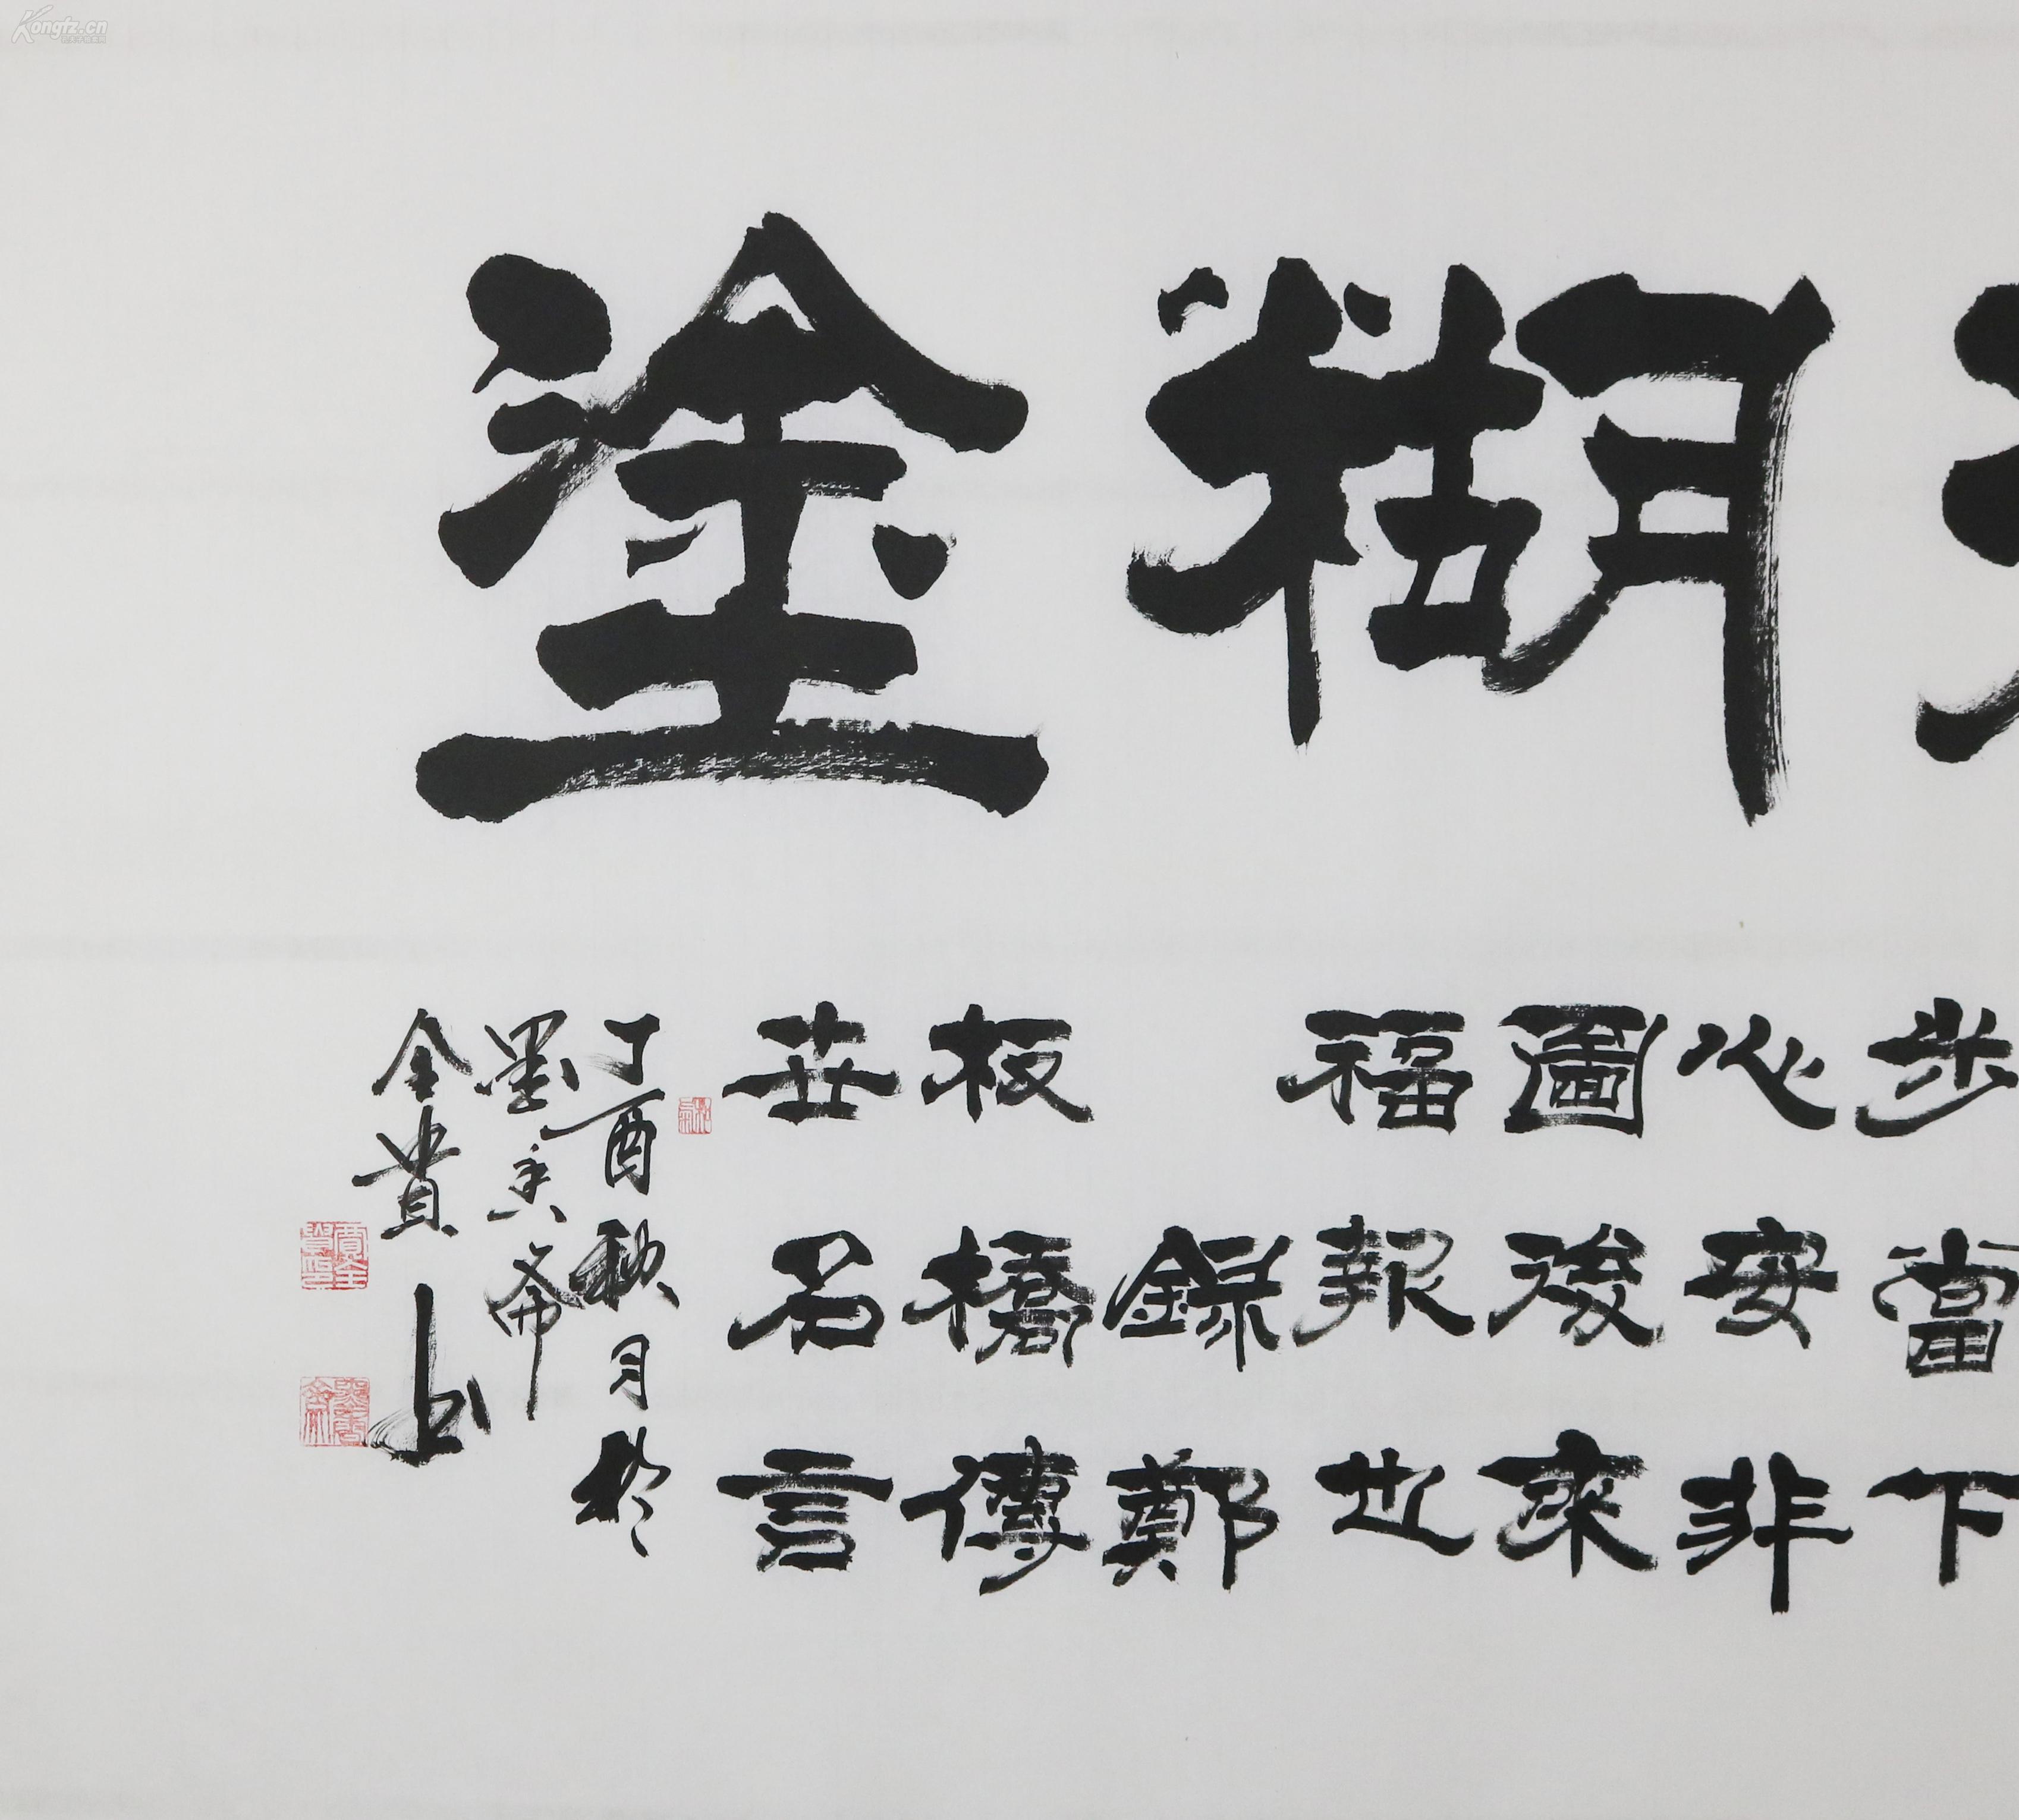 糊塗
步當下
心安非
圖後來
福報也
錄鄭
板橋傳
世名言
丁酉秋月於
墨香齋
全貴書
Kongfz.cn